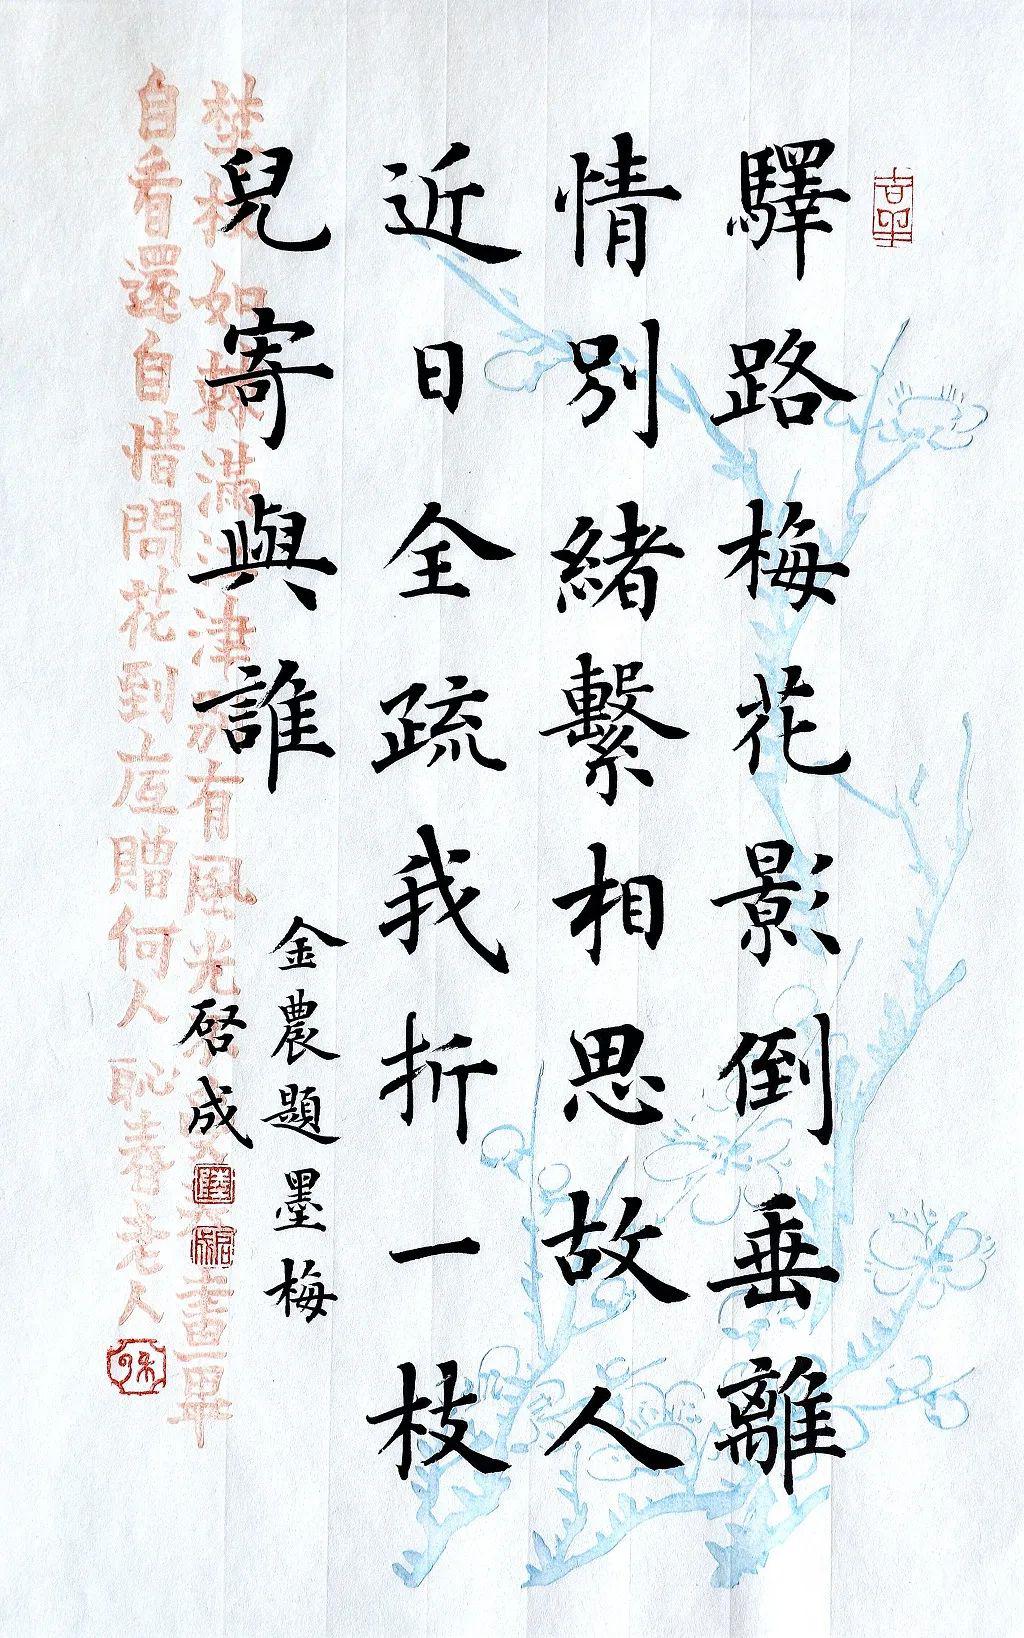 驛路梅花影倒垂離
情別緒繫相思故人
近日全疏我折一枝
兒寄與誰
金農題墨梅
啓成
滿
津
有風光
畫畢
自看還自惜問花到
贈何人恥春老人